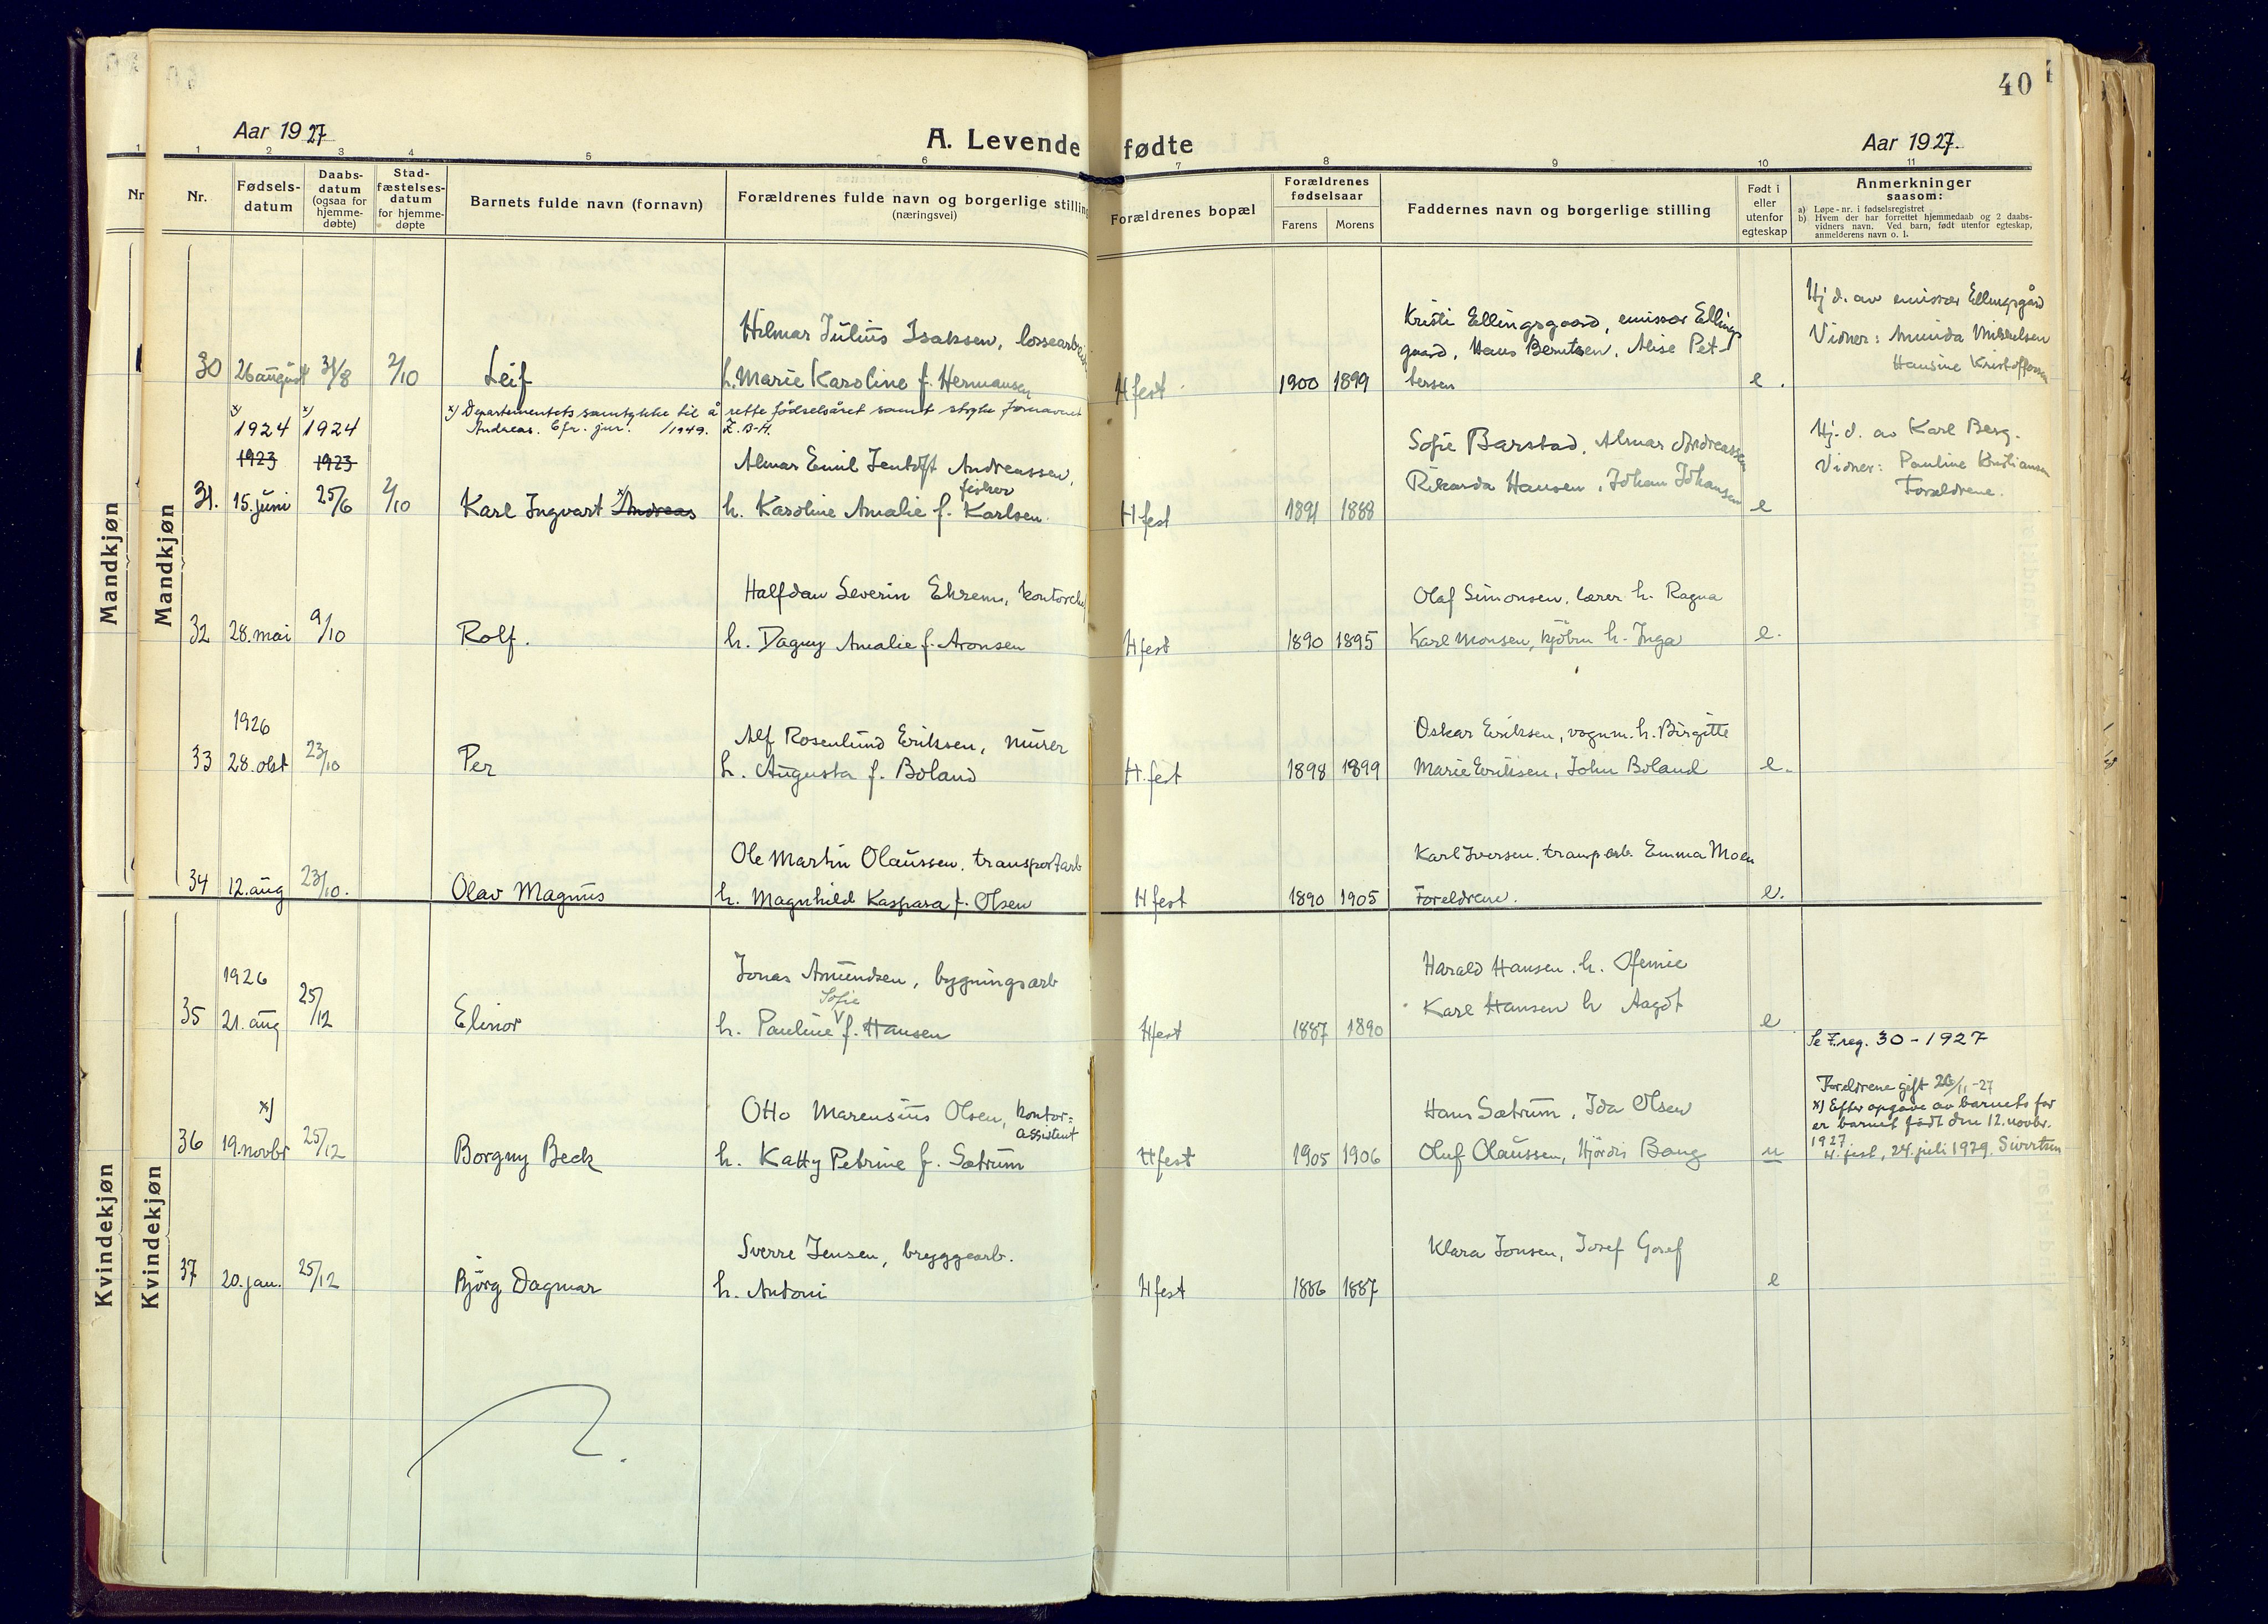 40
Aar 1927
A. Levende fødte
Aar 1927.
1 2 3 4 5 6 7 8 9 10 11
Nr.
Fødsels-
datum
Daabs-
datum
(ogsaa for
hjemme-
døbte)
Stad-
fæstelses-
datum
for hjemme-
døpte
Barnets fulde navn (fornavn)
Forældrenes fulde navn og borgerlige stilling
(næringsvei)
Forældrenes bopæl
Forældrenes
fødselsaar
Farens Morens
Faddernes navn og borgerlige stilling
Født i
eller
utenfor
egteskap
Anmerkninger
saasom:
a) Løpe-nr. i fødselsregistret
b) Hvem der har forrettet hjemmedaab og 2 daabs-
vidners navn. Ved barn, født utenfor egteskap,
anmelderens navn o. l.
Mandkjøn
Mandkjøn
30 26 august 31/8 2/10 Leif
Hilmar Julius Isaksen, lossearbeider
h. Marie Karoline f. Hermansen
Hfest 1900 1899
Kristi Ellingsgaard, emissær Ellings
gaard, Hans Berntsen, Alise Pet-
tersen
e.
Hj. d. av emissær Ellingsgård
Vidner: Amunda Mikkelsen
Hansine Kristoffersen
x) Departementets samtykke til å rette fødselsåret samt stryke fornavnet
Andreas. Cfr. jur. /1949. Z. B-H.
x) 1924 x) 1924
1923 1923
31. 15. juni 25/6 2/10 Karl Ingvart x) Andreas
Almar Emil Jentoft Andreassen,
fisker
h. Karoline Amalie f. Karlsen.
Hfest 1891 1888
Sofie Barstad, Almar Andreassen
Rikarda Hansen, Johan Johansen
e
Hj. d. av Karl Berg.
Vidner: Pauline Kristiansen
Forældrene.
32 28. mai 9/10 Rolf.
Halfdan Severin Ehrenn, kontorchef
h. Dagny Amalie f. Aronsen
Hfest 1890 1895
Olaf Simonsen, lærer h. Ragna
Karl Monsen, kjöbm h. Inga
e.
1926
33 28. okt 23/10 Per
Alf Rosenlund Eriksen, murer
h. Augusta f. Boland
H.fest 1898 1899
Oskar Eriksen, vognm. h. Birgitte
Marie Eriksen, John Boland
e.
34 12. aug 23/10. Olav Magnus
Ole Martin Olaussen, transportarb
h. Magnhild Kaspara f. Olsen
Hfest 1890 1905
Karl Iversen, transp arb. Emma Moen
Foreldrene.
e.
Kvindekjøn
Kvindekjøn
1926
35 21. aug 25/12 Elinor
Jonas Amundsen, bygningsarb
Sofie
h. Pauline f. Hansen
Hfest 1887 1890
Harald Hansen, h. Ofemie
Karl Hansen h Aagot
e
Se F.reg. 30 - 1927
x)
36 19. novbr 25/12 Borgny Beck
Otto Marensius Olsen, kontor=
assistent
h. Katty Petrine f. Sætrum
Hfest 1905 1906
Hans Sætrum, Ida Olsen
Oluf Olaussen, Hjördis Bang
u
Foreldrene gift 26/11-27
x) Efter opgave av barnets far
er barnet født den 12. novbr.
1927.
H.fest, 24. juli 1929. Sivertsen
37 20. jan. 25/12 Björg Dagmar
Sverre Jensen, bryggearb.
h. Antoni
Hfest 1886 1887
Klara Jonsen, Josef Gosef
e